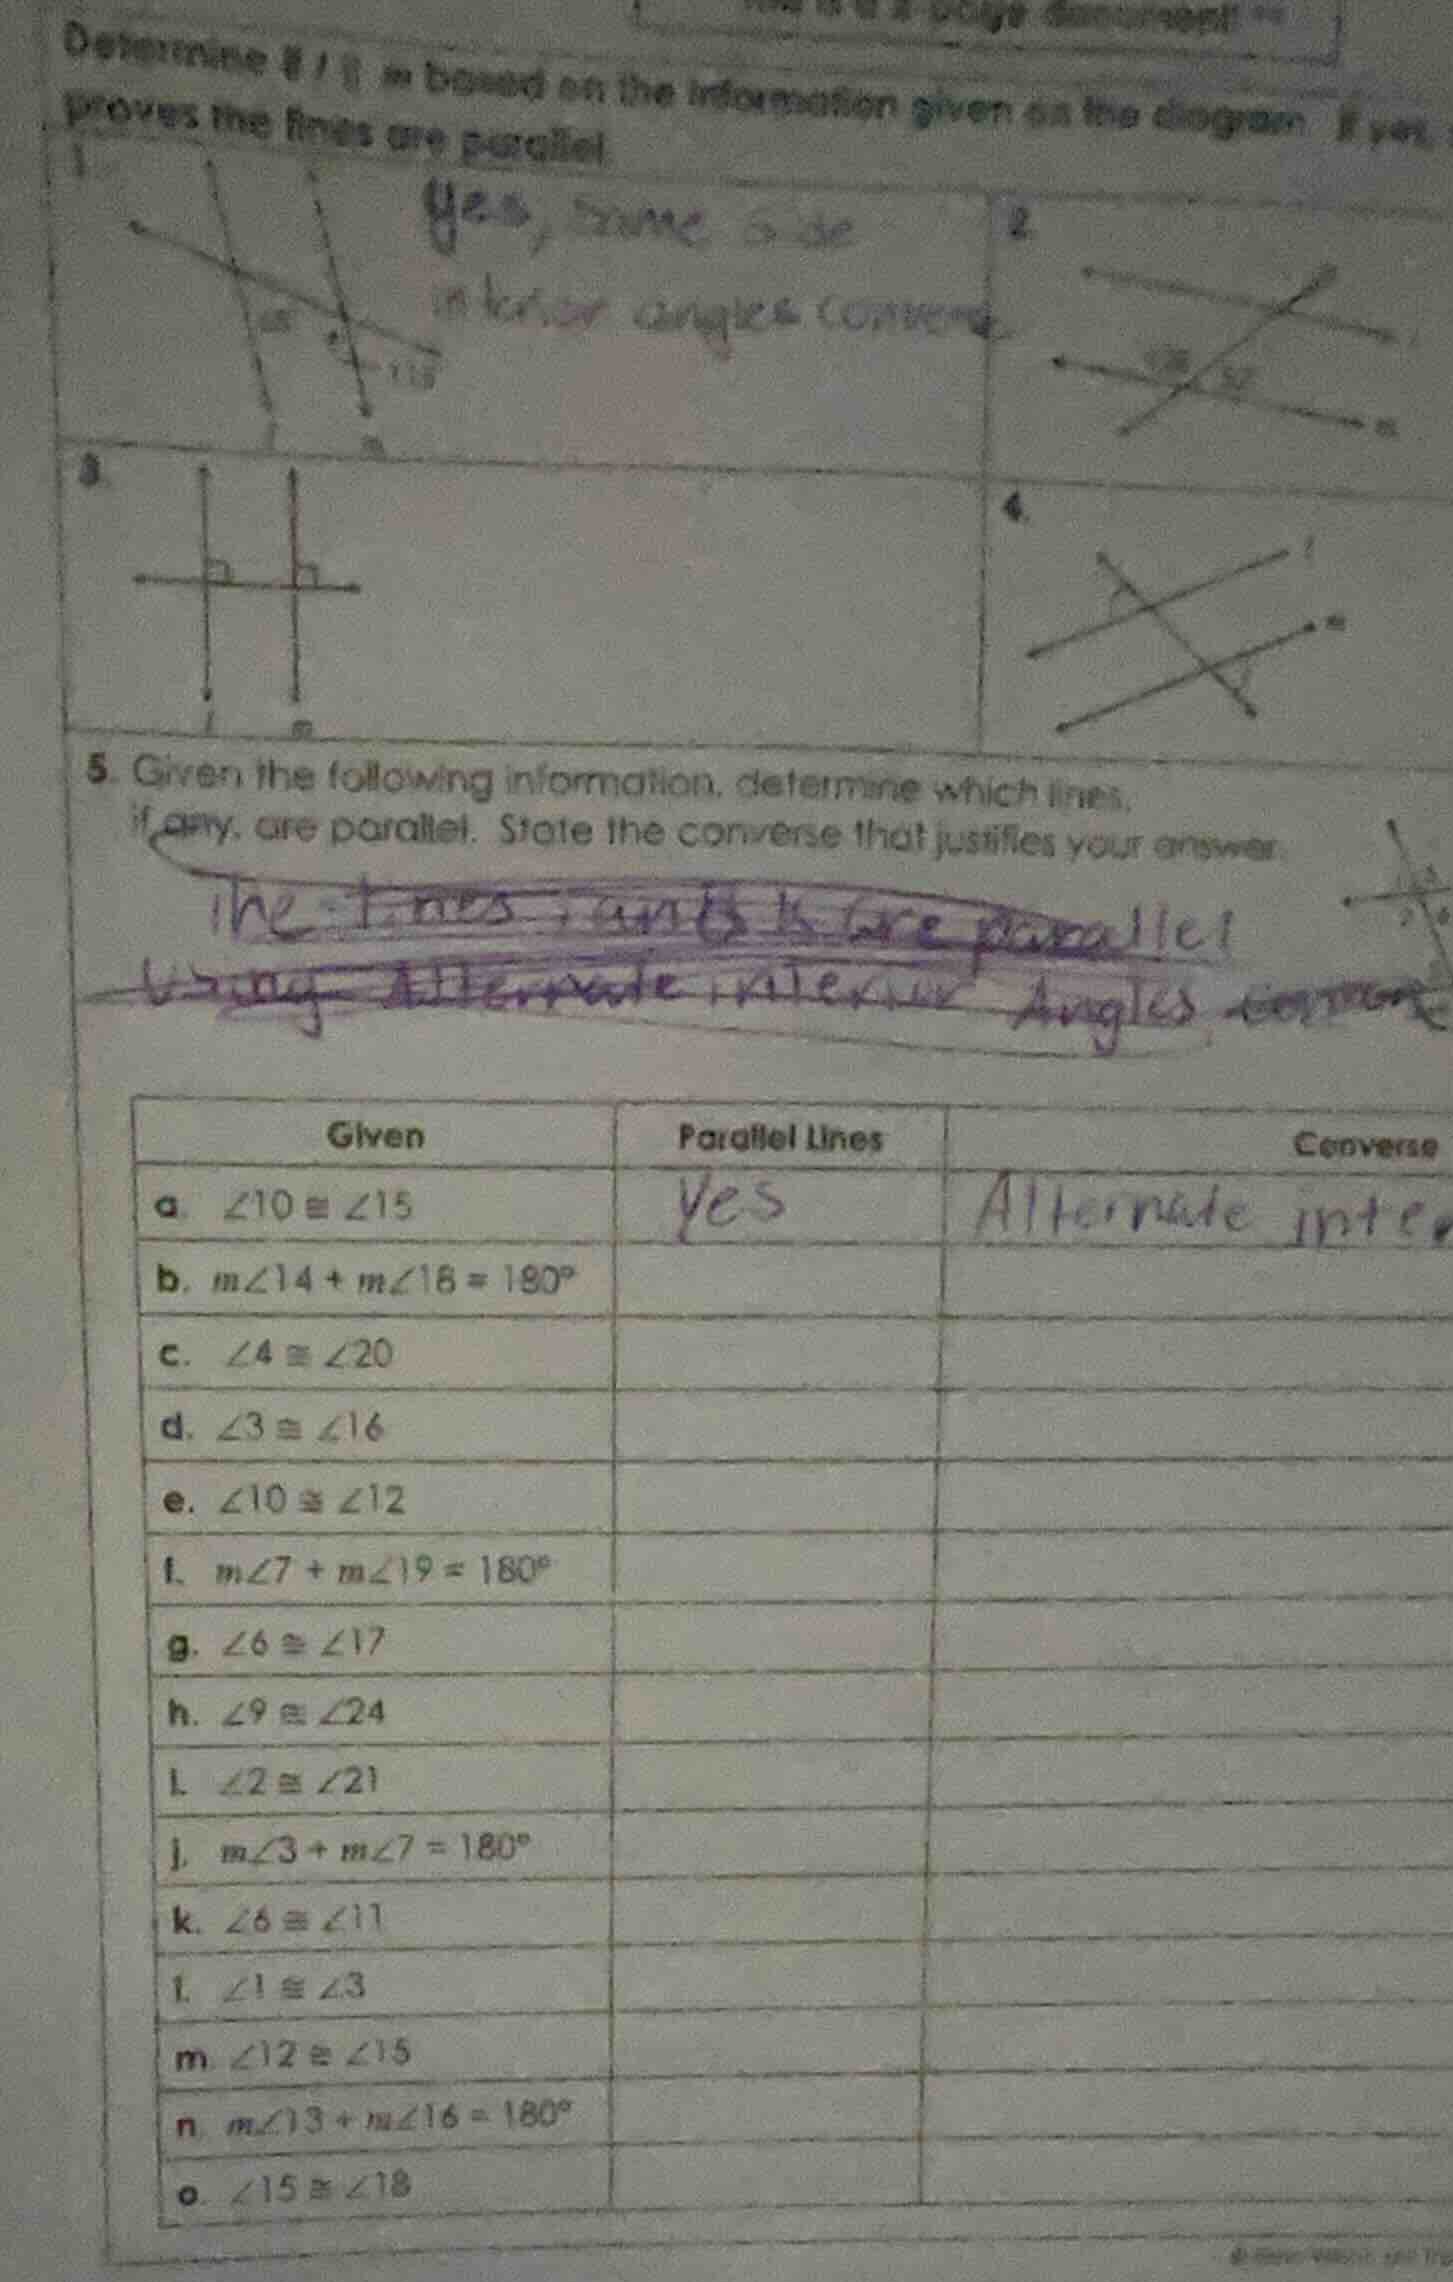 Determine if l ∥ m based on the information given on the diagram. If yes,
proves the lines are parallel.
1.
yes, Same side
interior angles converse
l
m
2.
m
3.
l
m
4.
l
m
5. Given the following information, determine which lines,
if any, are parallel. State the converse that justifies your answer.
The lines and k are parallel
Using Alternate interior Angles
Given Parallel Lines Converse
a. ∠10 ≅ ∠15 yes Alternate inter
b. m∠14 + m∠18 = 180°
c. ∠4 ≅ ∠20
d. ∠3 ≅ ∠16
e. ∠10 ≅ ∠12
f. m∠7 + m∠19 = 180°
g. ∠6 ≅ ∠17
h. ∠9 ≅ ∠24
i. ∠2 ≅ ∠21
j. m∠3 + m∠7 = 180°
k. ∠6 ≅ ∠11
l. ∠1 ≅ ∠3
m. ∠12 ≅ ∠15
n. m∠13 + m∠16 = 180°
o. ∠15 ≅ ∠18